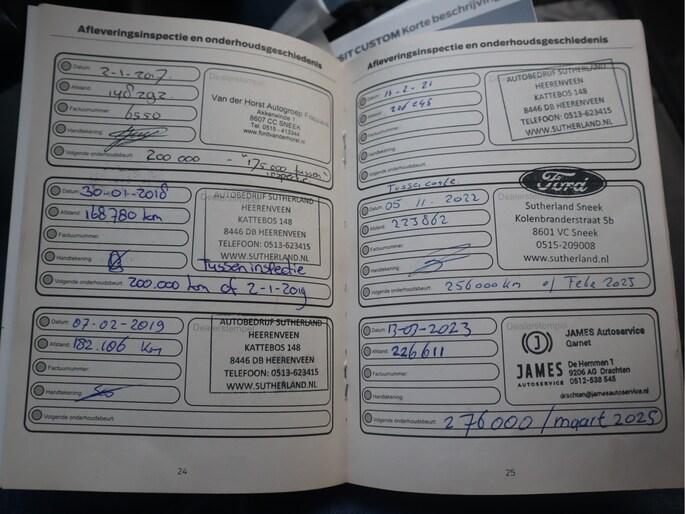 SIT CUSTOM Korte beschrijving
Afleveringsinspectie en onderhoudsgeschiedenis
Datum: 2-1-2017
Afstand: 148292
Factuurnummer: 6550
Handtekening:
Volgende onderhoudsbeurt: 200 000 - "175.000 tussen inspectie
Dealerstempel
Van der Horst Autogroep
Akkerwinde 1
8607 CC SNEEK
Tel. 0515 - 413344
www.fordvanderhorst.nl
Datum: 30-01-2018
Afstand: 168780 km
Factuurnummer:
Handtekening:
Volgende onderhoudsbeurt: 200.000 km of 2-1-2019
AUTOBEDRIJF SUTHERLAND
HEERENVEEN
KATTEBOS 148
8446 DB HEERENVEEN
TELEFOON: 0513-623415
WWW.SUTHERLAND.NL
Tussen inspectie
Datum: 07-02-2019
Afstand: 182.106 km
Factuurnummer:
Handtekening:
Volgende onderhoudsbeurt:
Dealerstempel
AUTOBEDRIJF SUTHERLAND
HEERENVEEN
KATTEBOS 148
8446 DB HEERENVEEN
TELEFOON: 0513-623415
WWW.SUTHERLAND.NL
24
Afleveringsinspectie en onderhoudsgeschiedenis
Datum:
Afstand:
Factuurnummer:
Handtekening:
Volgende onderhoudsbeurt:
Dealerstempel
AUTOBEDRIJF SUTHERLAND
HEERENVEEN
KATTEBOS 148
8446 DB HEERENVEEN
TELEFOON: 0513-623415
WWW.SUTHERLAND.NL
Datum: 05 11 2022
Afstand: 223862
Factuurnummer:
Handtekening:
Volgende onderhoudsbeurt: 256000 km of Feb 2023
Ford
Sutherland Sneek
Kolenbranderstraat 5b
8601 VC Sneek
0515-209008
www.sutherland.nl
Datum: 13-03-2023
Afstand: 226611
Factuurnummer:
Handtekening:
Volgende onderhoudsbeurt: 276000 / maart 2025
Dealerstempel
JAMES
AUTOSERVICE
JAMES Autoservice
Qarnet
De Hemmen 1
9206 AG Drachten
0512-538 545
drachten@jamesautoservice.nl
25